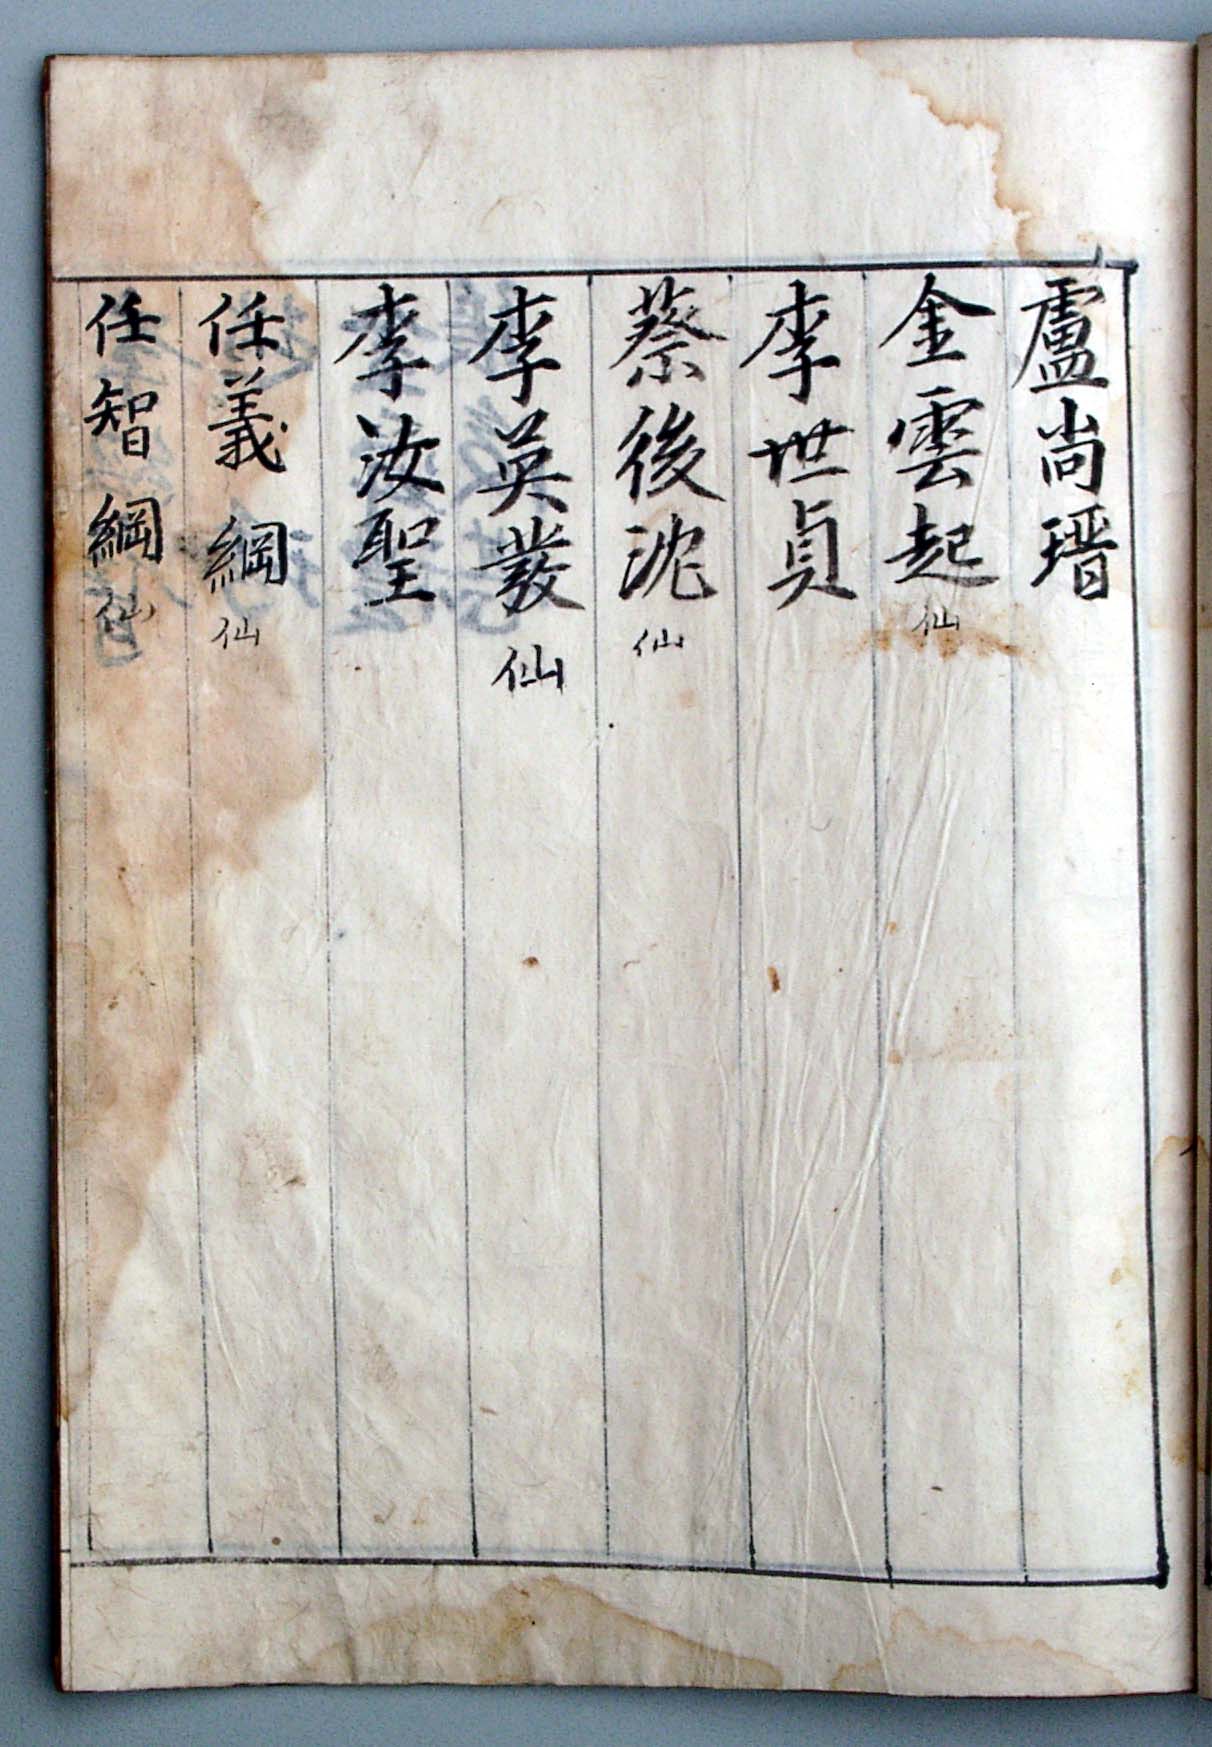 盧尚瑨
金雲起仙
李世貞
蔡後沈仙
李英發仙
李汝聖
任義綱仙
任智綱仙